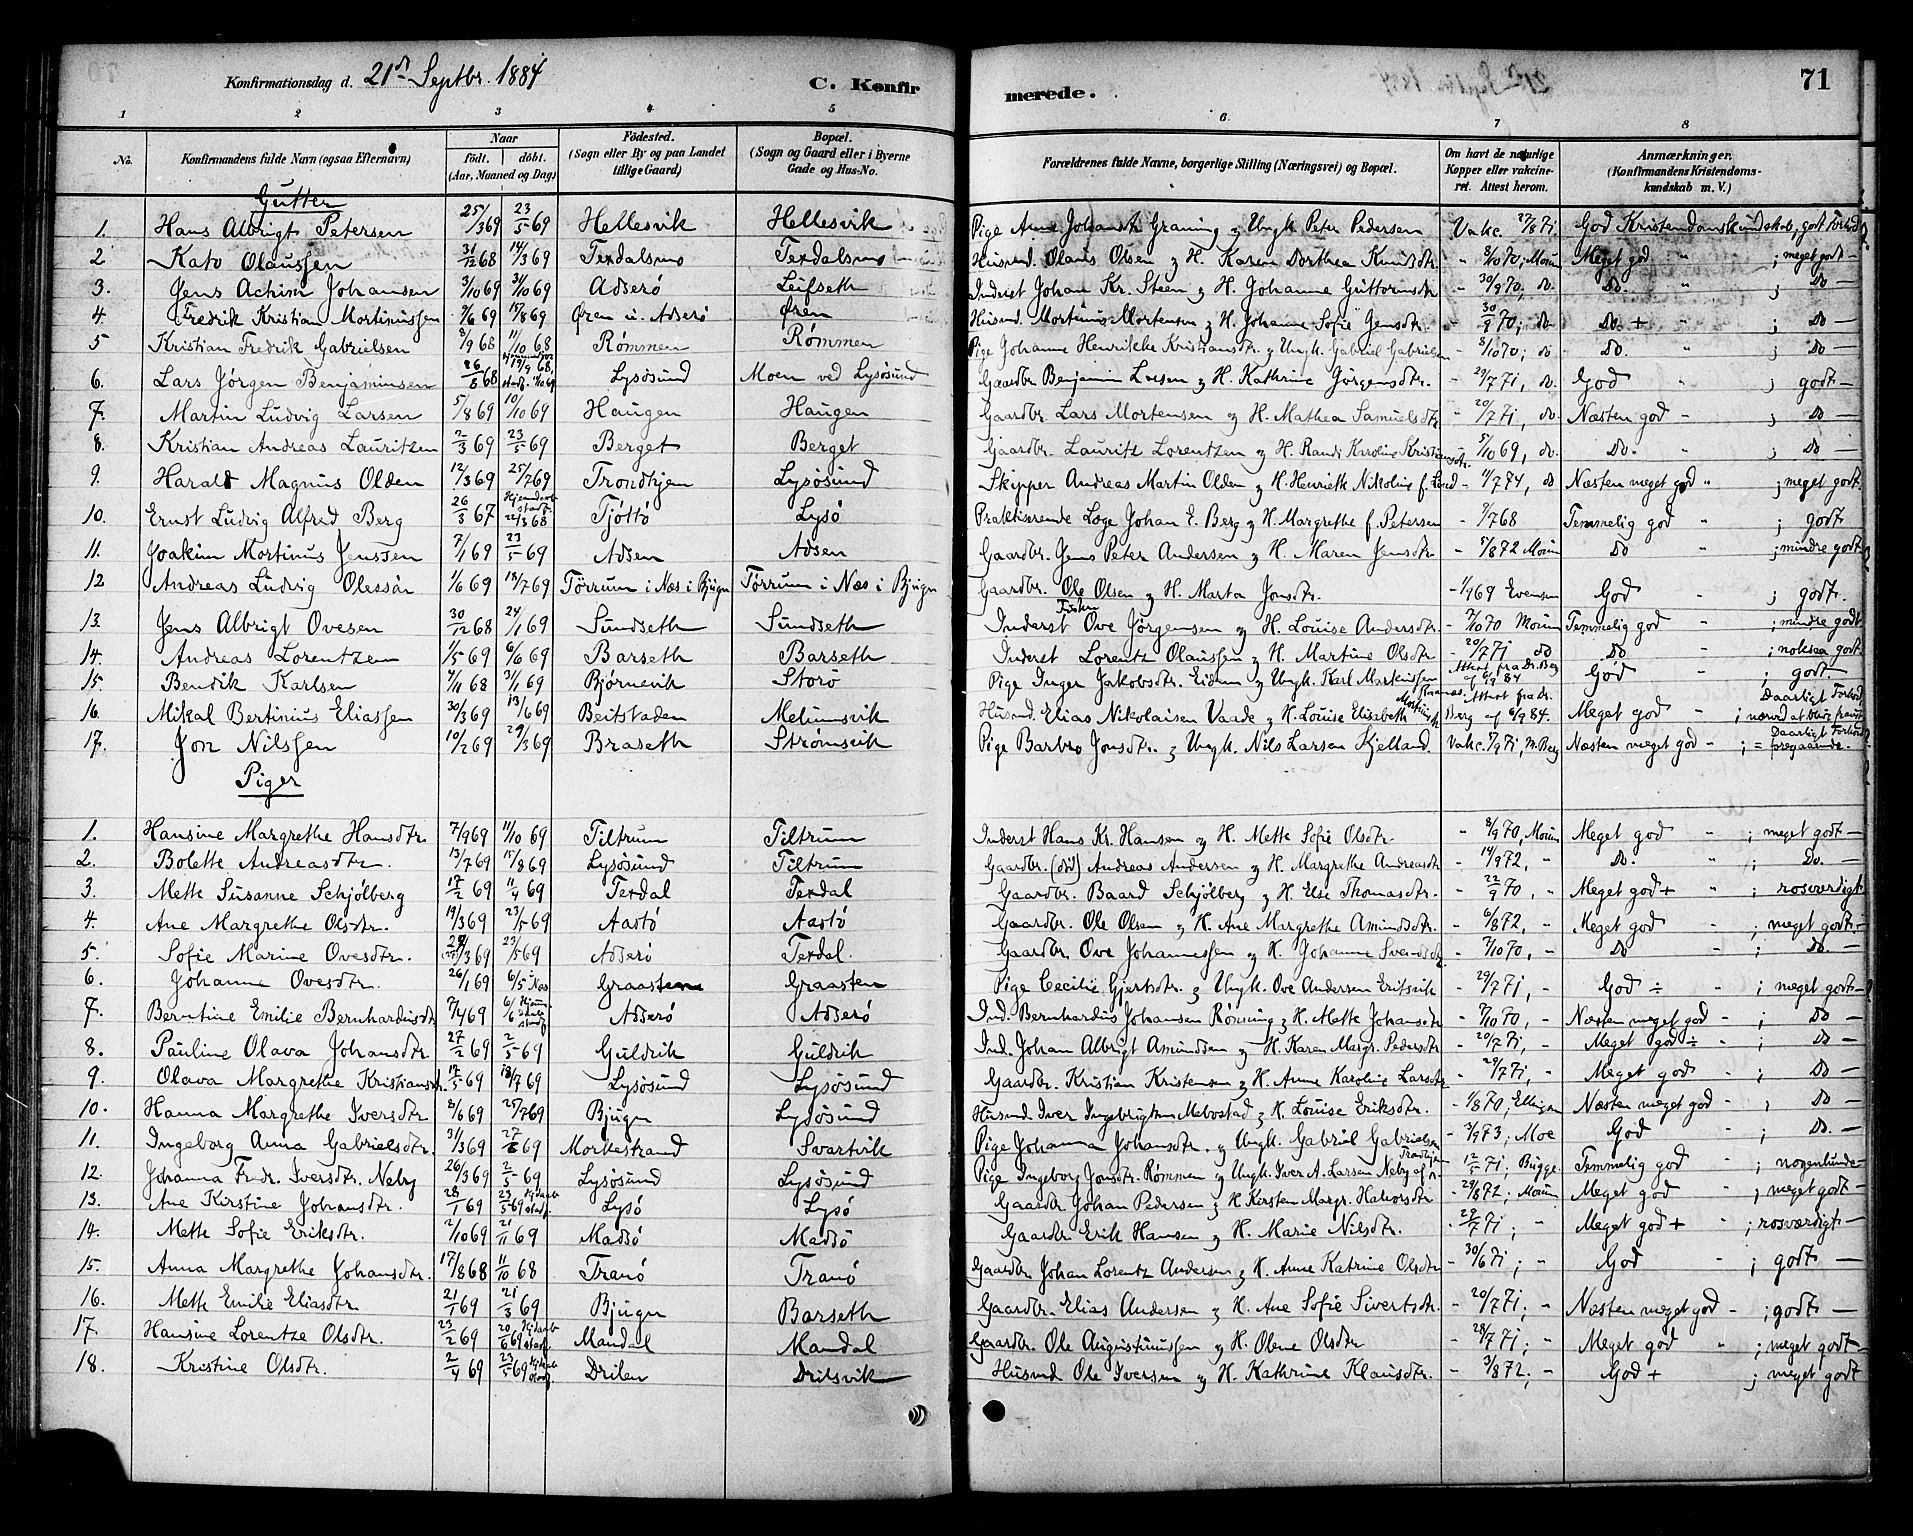 Konfirmationsdag d. 21de Septbr. 1884 C. Konfir merede. 71
1 2 3 4 5 6 7 8
No. Konfirmandens fulde Navn (ogsaa Efternavn) Naar født. døbt. (Aar, Maaned og Dag) Fødested. (Sogn eller By og paa Landet tillige Gaard) Bopæl. (Sogn og Gaard eller i Byerne Gade og Hus-No. Forældrenes fulde Navne, borgerlige Stilling (Næringsvei) og Bopæl. Om havt de naturlige Kopper eller vakcineret. Attest herom. Anmærkninger. (Konfirmandens Kristendomskundskab m. V.)
Gutter
1. Hans Albrigt Petersen 25/3 69 23/5 69 Hellesvik Hellesvik Pige Ane Johansdtr Graning og Ungk. Peter Pedersen Vakc. 27/8 71 God Kristendomskundskab, godt Forhold
2 Kato Olaussen 31/12 68 14/3 69 Terdalsmo Terdalsmo Husmd. Olaus Olsen og H. Karen Dorthea Knudsdtr. " 8/10 70, Moum Meget god " ; meget godt —
3. Jens Achim Johansen 3/10 69 31/10 69 Adserø Leifseth Inderst Johan Kr. Steen og H. Johanne Guttormsdtr - 30/9 70, do. Do. " ; Do —
4. Fredrik Kristian Mortinussen 7/6 69 19/8 69 Øren u. Adserø Øren Husmd. Mortinus Mortensen og H. Johanne Sofie Jensdtr. - 30/9 70; do Do. + " ; Do —
5 Kristian Fredrik Gabrielsen 8/9 68 11/10 68 Rømmen Rømmen Pige Johanne Henrikke Kristiansdtr. og Ungk. Gabriel Gabrielsen - 8/10 70; do Do. " ; Do —
6. Lars Jørgen Benjaminsen 26/8 68 Lysøsund Moen ved Lysøsund Gaardbr. Benjamin Larsen og H. Kathrine Jørgensdtr. - 29/7 71, do. God " ; godt —
7. Martin Ludvig Larsen 5/8 69 10/10 69 Haugen Haugen Gaardbr. Lars Mortensen og H. Mathea Samuelsdtr - 20/7 71, do. Næsten god - ; Do —
8. Kristian Andreas Lauritzen 2/3 69 23/5 69 Berget Berget Gaardbr. Lauritz Lorentzen og H. Randi Karoline Kristiansdtr. - 5/10 69, do. Do. ; Do —
9. Harald Magnus Olden 12/3 69 25/7 69 Trondhjem Lysøsund Skipper Andreas Martin Olden og H. Henriette Nikoline f. Lund - 14/7 74, do Næsten meget god " ; meget godt.
10. Ernst Ludvig Alfred Berg 26/3 67 Hjemdøbt stadf. 22/3 68 Tjøttø Lysø Praktiserende Læge Johan E. Berg og H. Margrethe f. Petersen - 9/7 68 Temmelig god " ; godt
11. Joakim Mortinus Jenssen 7/1 69 23/5 69 Adsen Adsen Gaardbr. Jens Peter Andersen og H. Maren Jensdtr. - 5/8 72 Moum Do " ; mindre godt
12 Andreas Ludvig Olessøn 1/6 69 18/7 69 Tørrum i Næs i Bjugn Tørrum i Næs i Bjugn Gaardbr. Ole Olsen og H. Marta Jonsdtr. - 1/9 69 Evensen God - ; godt.
13. Jens Albrigt Ovesen 30/12 68 24/1 69 Sundseth Sundseth Inderst Fisker Ove Jørgensen og H. Louise Andersdtr. - 7/10 70 Moum Temmelig god - ; mindre godt
14. Andreas Lorentzen 1/5 69 6/6 69 Barseth Barseth Inderst Lorentz Olaussen og H. Martine Olsdtr - 20/7 71 do Do ; noksaa godt.
15. Bendik Karlsen 4/11 68 31/1 69 Bjørnevik Storø Pige Inger Jakobsdtr. Eidem og Ungk. Karl Markussen Attest fra Dr. Berg af 6/9 84 God ; godt
16. Mikal Bertinius Eliassen 30/3 69 13/6 69 Beitstaden Melumsvik Husmd. Elias Nikolaisen Vaade og H. Louise Elisabeth Attest fra Dr. Berg af 6/9 84. Meget god - ; Daarligt Forhold nærved at blive
17. Jon Nilssen 10/2 69 29/3 69 Braseth Strømsvik Pige Barbro Jonsdtr. og Ungk. Nils Larsen Hjelland. Vakc. 7/9 71, M. Berg Næsten meget god - ; Daarligt Forhold = foregaaende.
Piger
1. Hansine Margrethe Hansdtr. 7/9 69 11/10 69 Tiltrum Tiltrum Inderst Hans Kr. Hansen og H. Mette Sofie Olsdtr - 8/9 70, Moum Meget god " ; meget godt —
2. Bolette Andreasdtr. 13/7 69 15/8 69 Lysøsund Tiltrum Gaardbr. (død) Andreas Andersen og H. Margrethe Andreasdtr - 14/9 72, " Do. " ; Do. —
3. Mette Susanne Schjølberg 17/2 69 11/4 69 Terdal Terdal Gaardbr. Baard Schjølberg og H. Else Thomasdtr. - 22/9 70, - Meget god + " ; rosværdigt
4. Ane Margrethe Olsdtr. 19/3 69 23/5 69 Aastø Aastø Gaardbr. Ole Olsen og H. Ane Margrethe Amundsdtr. - 6/8 72, - Meget god ; meget godt —
5. Sofie Marine Ovesdtr. 23/5 69 Adserø Terdal. Gaardbr. Ove Johannessen og H. Johanne Svendsdtr - 7/10 70, - Do - ; Do. —
6. Johanne Ovesdtr. 26/1 69 6/5 Næs Graasten Graasten Pige Cecilie Gjertsdtr. og Ungk. Ove Andersen Eritsvik - 29/7 71, - God ÷ " ; meget godt —
7. Berntine Emilie Bernhardusdtr 7/4 69 Adserø Adserø Ind. Bernhardus Johansen Rønning og H. Mette Johansdtr - 7/10 70, - Næsten meget god - ; Do —
8. Pauline Olava Johansdtr. 27/2 69 2/5 69 Guldvik Guldvik Ind. Johan Albrigt Amundsen og H. Karen Margr. Pedersdtr - 20/7 71, - Meget god ÷ - ; Do —
9. Olava Margrethe Kristiansdtr. 17/5 69 18/7 69 Lysøsund Lysøsund Gaardbr. Kristian Kristensen og H. Anne Karoline Larsdtr - 20/7 71, - Meget god - ; Do —
10. Hanna Margrethe Iversdtr. 8/6 69 25/7 69 Bjugn Lysøsund Husmd. Iver Ingebrigtsen Mebostad og H. Louise Eriksdtr. - 1/8 70, Elligsen Næsten meget god - ; Do —
11. Ingeborg Anna Gabrielsdtr. 31/3 69 27/6 69 Morkestrand Svartvik Pige Johanna Johansdtr. og Ungk. Gabriel Gabrielsen - 3/9 73, Moe God ; Do. —
12. Johanna Fredr. Iversdtr. Neby 26/3 69 2/5 69 Lysøsund Lysøsund Pige Ingeborg Jonsdtr. Rømmen og Ungk. Iver A. Larsen Neby af Trondhjem 12/5 71, Bugge. Temmelig god - ; nogenlunde —
13. Ane Kirstine Johansdtr. 28/1 69 23/5 69 Hjdøbt stadf. Lysø Lysø Gaardbr. Johan Pedersen og H. Kersten Margr. Halvorsdtr - 29/8 72, Moum Meget god - ; meget godt —
14. Mette Sofie Eriksdtr. 2/10 69 21/11 69 Madsø Madsø Gaardbr. Erik Hansen og H. Marie Nilsdtr. - 29/7 71; " Meget god + - ; rosværdigt —
15. Anna Margrethe Johansdtr. 17/8 68 11/10 68 Tranø Tranø Gaardbr. Johan Lorentz Andersen og H. Anne Katrine Olsdtr - 30/6 71; - God " ; godt —
16. Mette Emilie Eliasdtr 21/1 69 21/3 69 Bjugn Barseth Gaardbr. Elias Andersen og H. Ane Sofie Sivertsdtr. - 20/7 71; - Næsten meget god - ; godt —
17. Hansine Lorentze Olsdtr. 23/2 69 20/6 69 Hjdøbt stadf. Mandal Mandal Gaardbr. Ole Augustinussen og H. Olene Olsdtr - 28/7 71; - Meget god " ; meget godt —
18. Kristine Olsdtr. 2/4 69 23/5 69 Hjdøbt stadf. Drilen Drilsvik Husmd Ole Iversen og H. Kathrine Klausdtr. - 3/8 72; - God + ; meget godt